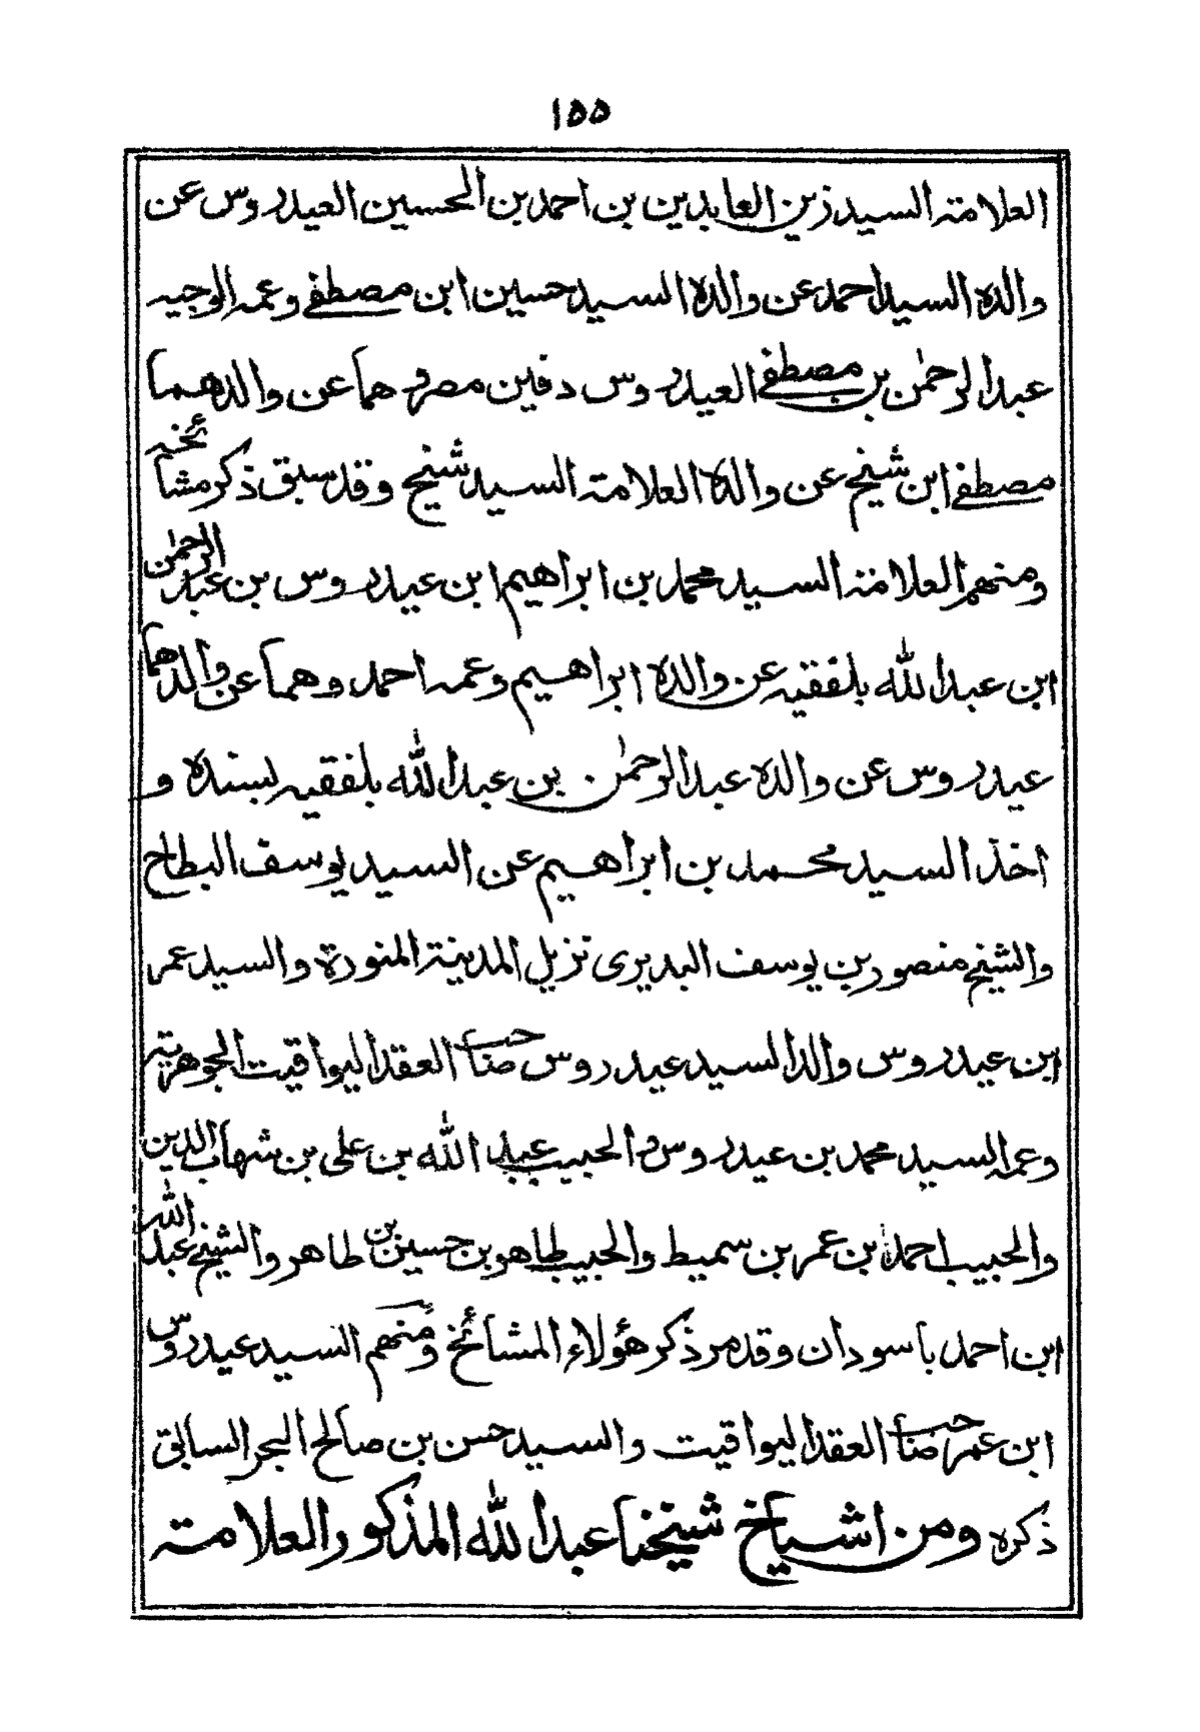 ١٥٥
العلامة السيد زين العابدين بن احمد بن الحسين العيدروس عن
والده السيد احمد عن والده السيد حسين ابن مصطفى وعمه الوجيه
عبد الرحمٰن بن مصطفى العيدروس دفين مصر وهما عن والدهما
مصطفى ابن شيخ عن والده العلامة السيد شيخ وقد سبق ذكر مشائخه
ومنهم العلامة السيد محمد بن ابراهيم ابن عيدروس بن عبد الرحمٰن
ابن عبد الله بلفقيه عن والده ابراهيم وعمه احمد وهما عن والدهما
عيدروس عن والده عبد الرحمٰن بن عبد الله بلفقيه بسنده و
اخذ السيد محمد بن ابراهيم عن السيد يوسف البطاح
والشيخ منصور بن يوسف البديرى نزيل المدينة المنورة والسيد عمر
ابن عيدروس والد السيد عيدروس صاحب العقد اليواقيت الجوهرية
وعمه السيد محمد بن عيدروس والحبيب عبد الله بن على بن شهاب الدين
والحبيب احمد بن عمر بن سميط والحبيب طاهر بن حسين بن طاهر والشيخ عبد الله
ابن احمد باسودان وقد مر ذكر هؤلاء المشائخ ومنهم السيد عيدروس
ابن عمر صاحب العقد اليواقيت والسيد حسن بن صالح البحر السابق
ذكره ومن اشياخ شيخنا عبد الله المذكور العلامة